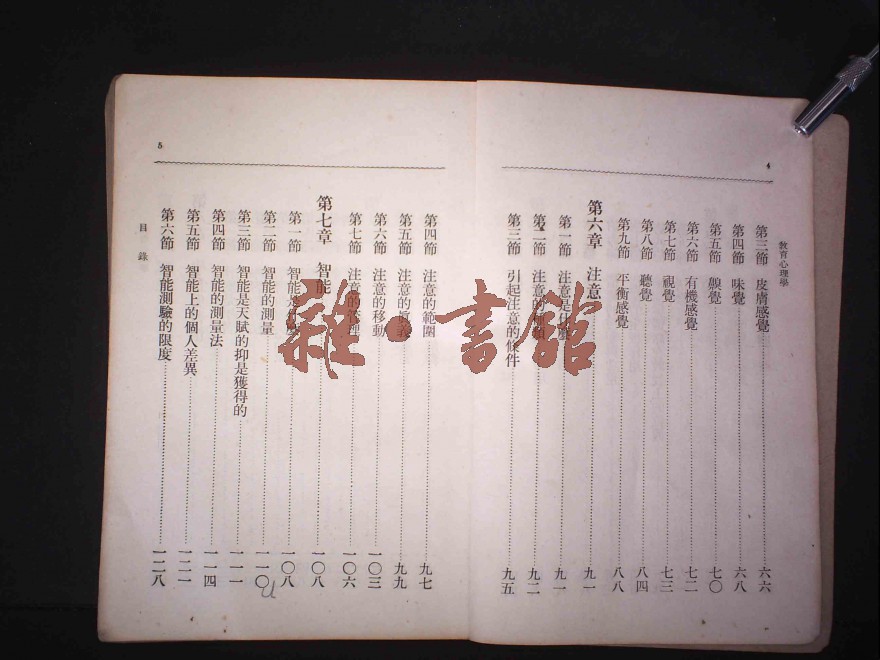 教育心理學
4
第三節 皮膚感覺 六六
第四節 味覺 六八
第五節 嗅覺 七〇
第六節 有機感覺 七二
第七節 視覺 七三
第八節 聽覺 八四
第九節 平衡感覺 八八
第六章 注意 九一
第一節 注意是什麼 九一
第二節 注意的 九二
第三節 引起注意的條件 九五
雜·書館
5
第四節 注意的範圍 九七
第五節 注意的 九九
第六節 注意的移動 一〇三
第七節 注意的管理 一〇六
第七章 智能 一〇八
第一節 智能是什麼 一〇八
第二節 智能的測量 一一〇
第三節 智能是天賦的抑是獲得的 一一一
第四節 智能的測量法 一一四
第五節 智能上的個人差異 一二一
第六節 智能測驗的限度 一二八
目錄